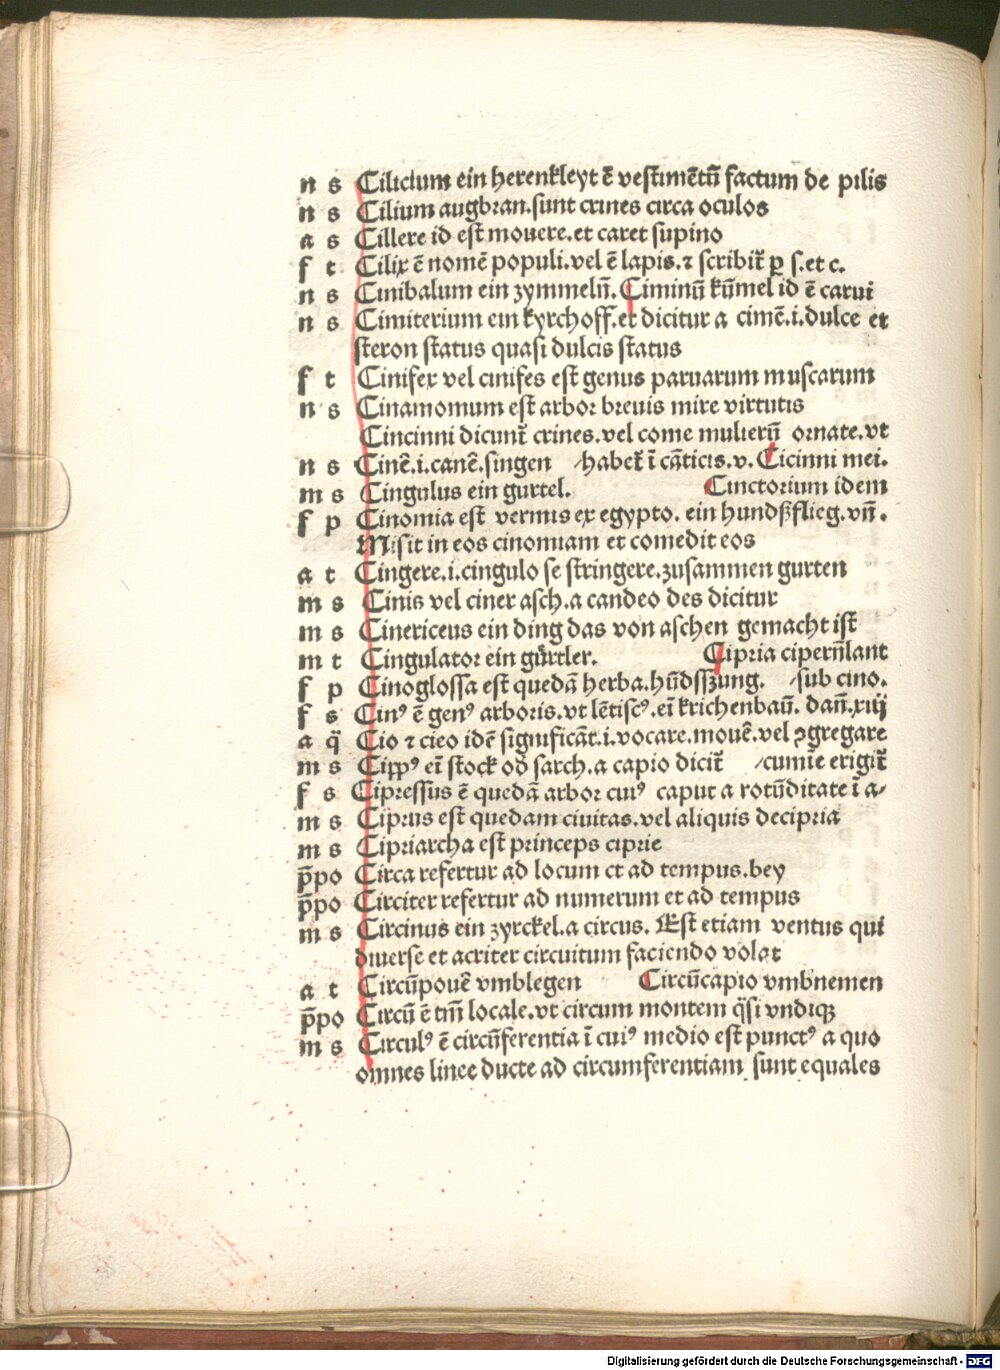 n s Cilicium ein herenkleyt ē vestimētū factum de pilis
n s Cilium augbran.sunt crines circa oculos
a s Cillere id est mouere.et caret supino
f t Cilix ē nomē populi.vel ē lapis.⁊ scribit̃ p̱ s.et c.
n s Cinibalum ein zymmelñ. Ciminũ kũmel id ē carui
n s Cimiterium ein kyrchoff.et dicitur a cimē.i.dulce et
steron status quasi dulcis status
f t Cinifex vel cinifes est genus paruarum muscarum
n s Cinamomum est arbor breuis mire virtutis
Cincinni dicunt̃ crines.vel come mulierũ ornate.vt
n s Cinē.i.canē.singen /habet̃ ī cāticis.v. Cicinni mei.
m s Cingulus ein gurtel. Cinctorium idem
f p Cinomia est vermis ex egypto. ein hundßflieg.vñ.
Misit in eos cinomiam et comedit eos
a t Cingere.i.cingulo se stringere.zusammen gurten
m s Cinis vel ciner asch.a candeo des dicitur
m s Cinericeus ein ding das von aschen gemacht ist
m t Cingulator ein gürtler. Cipria cipernlant
f p Cinoglossa est quedā herba.hūdsszung. /sub cino.
f s Cinꝰ ē genꝰ arboris.vt lētiscꝰ.eī krichenbaū. dañ.xiij
a q̃ Cio ⁊ cieo idē significāt.i.vocare.mouē.vel ꝯgregare
m s Cippꝰ eī stock od sarch.a capio dicit̃ /cumīe erigit̃
f s Cipressus ē quedā arbor cuiꝰ caput a rotūditate ī a⸗
m s Ciprus est quedam ciuitas.vel aliquis decipria
m s Cipriarcha est princeps ciprie
p̄po Circa refertur ad locum et ad tempus.bey
p̄po Circiter refertur ad numerum et ad tempus
m s Circinus ein zyrckel.a circus. Est etiam ventus qui
diuerse et acriter circuitum faciendo volat
a t Circūpouē vmblegen Circūcapio vmbnemen
p̄po Circū ē tm̄ locale.vt circum montem q̃si vndiqꝫ
m s Circulꝰ ē circūferentia ī cuiꝰ medio est punctꝰ a quo
omnes linee ducte ad circumferentiam sunt equales
Digitalisierung gefördert durch die Deutsche Forschungsgemeinschaft - DFG